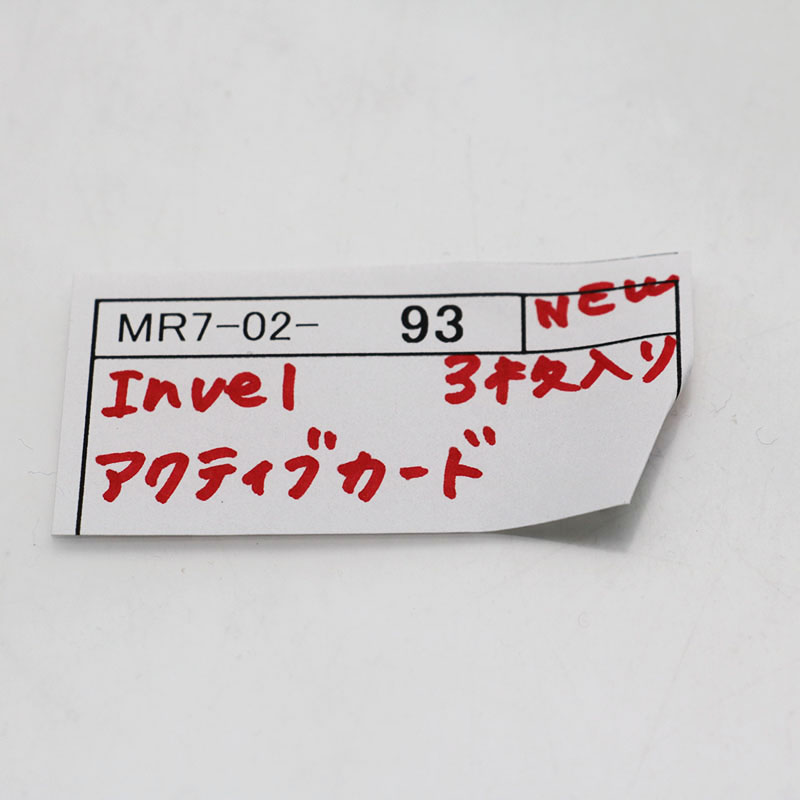 MR7-02- 93 NEW
Invel 3枚入り
アクティブカード